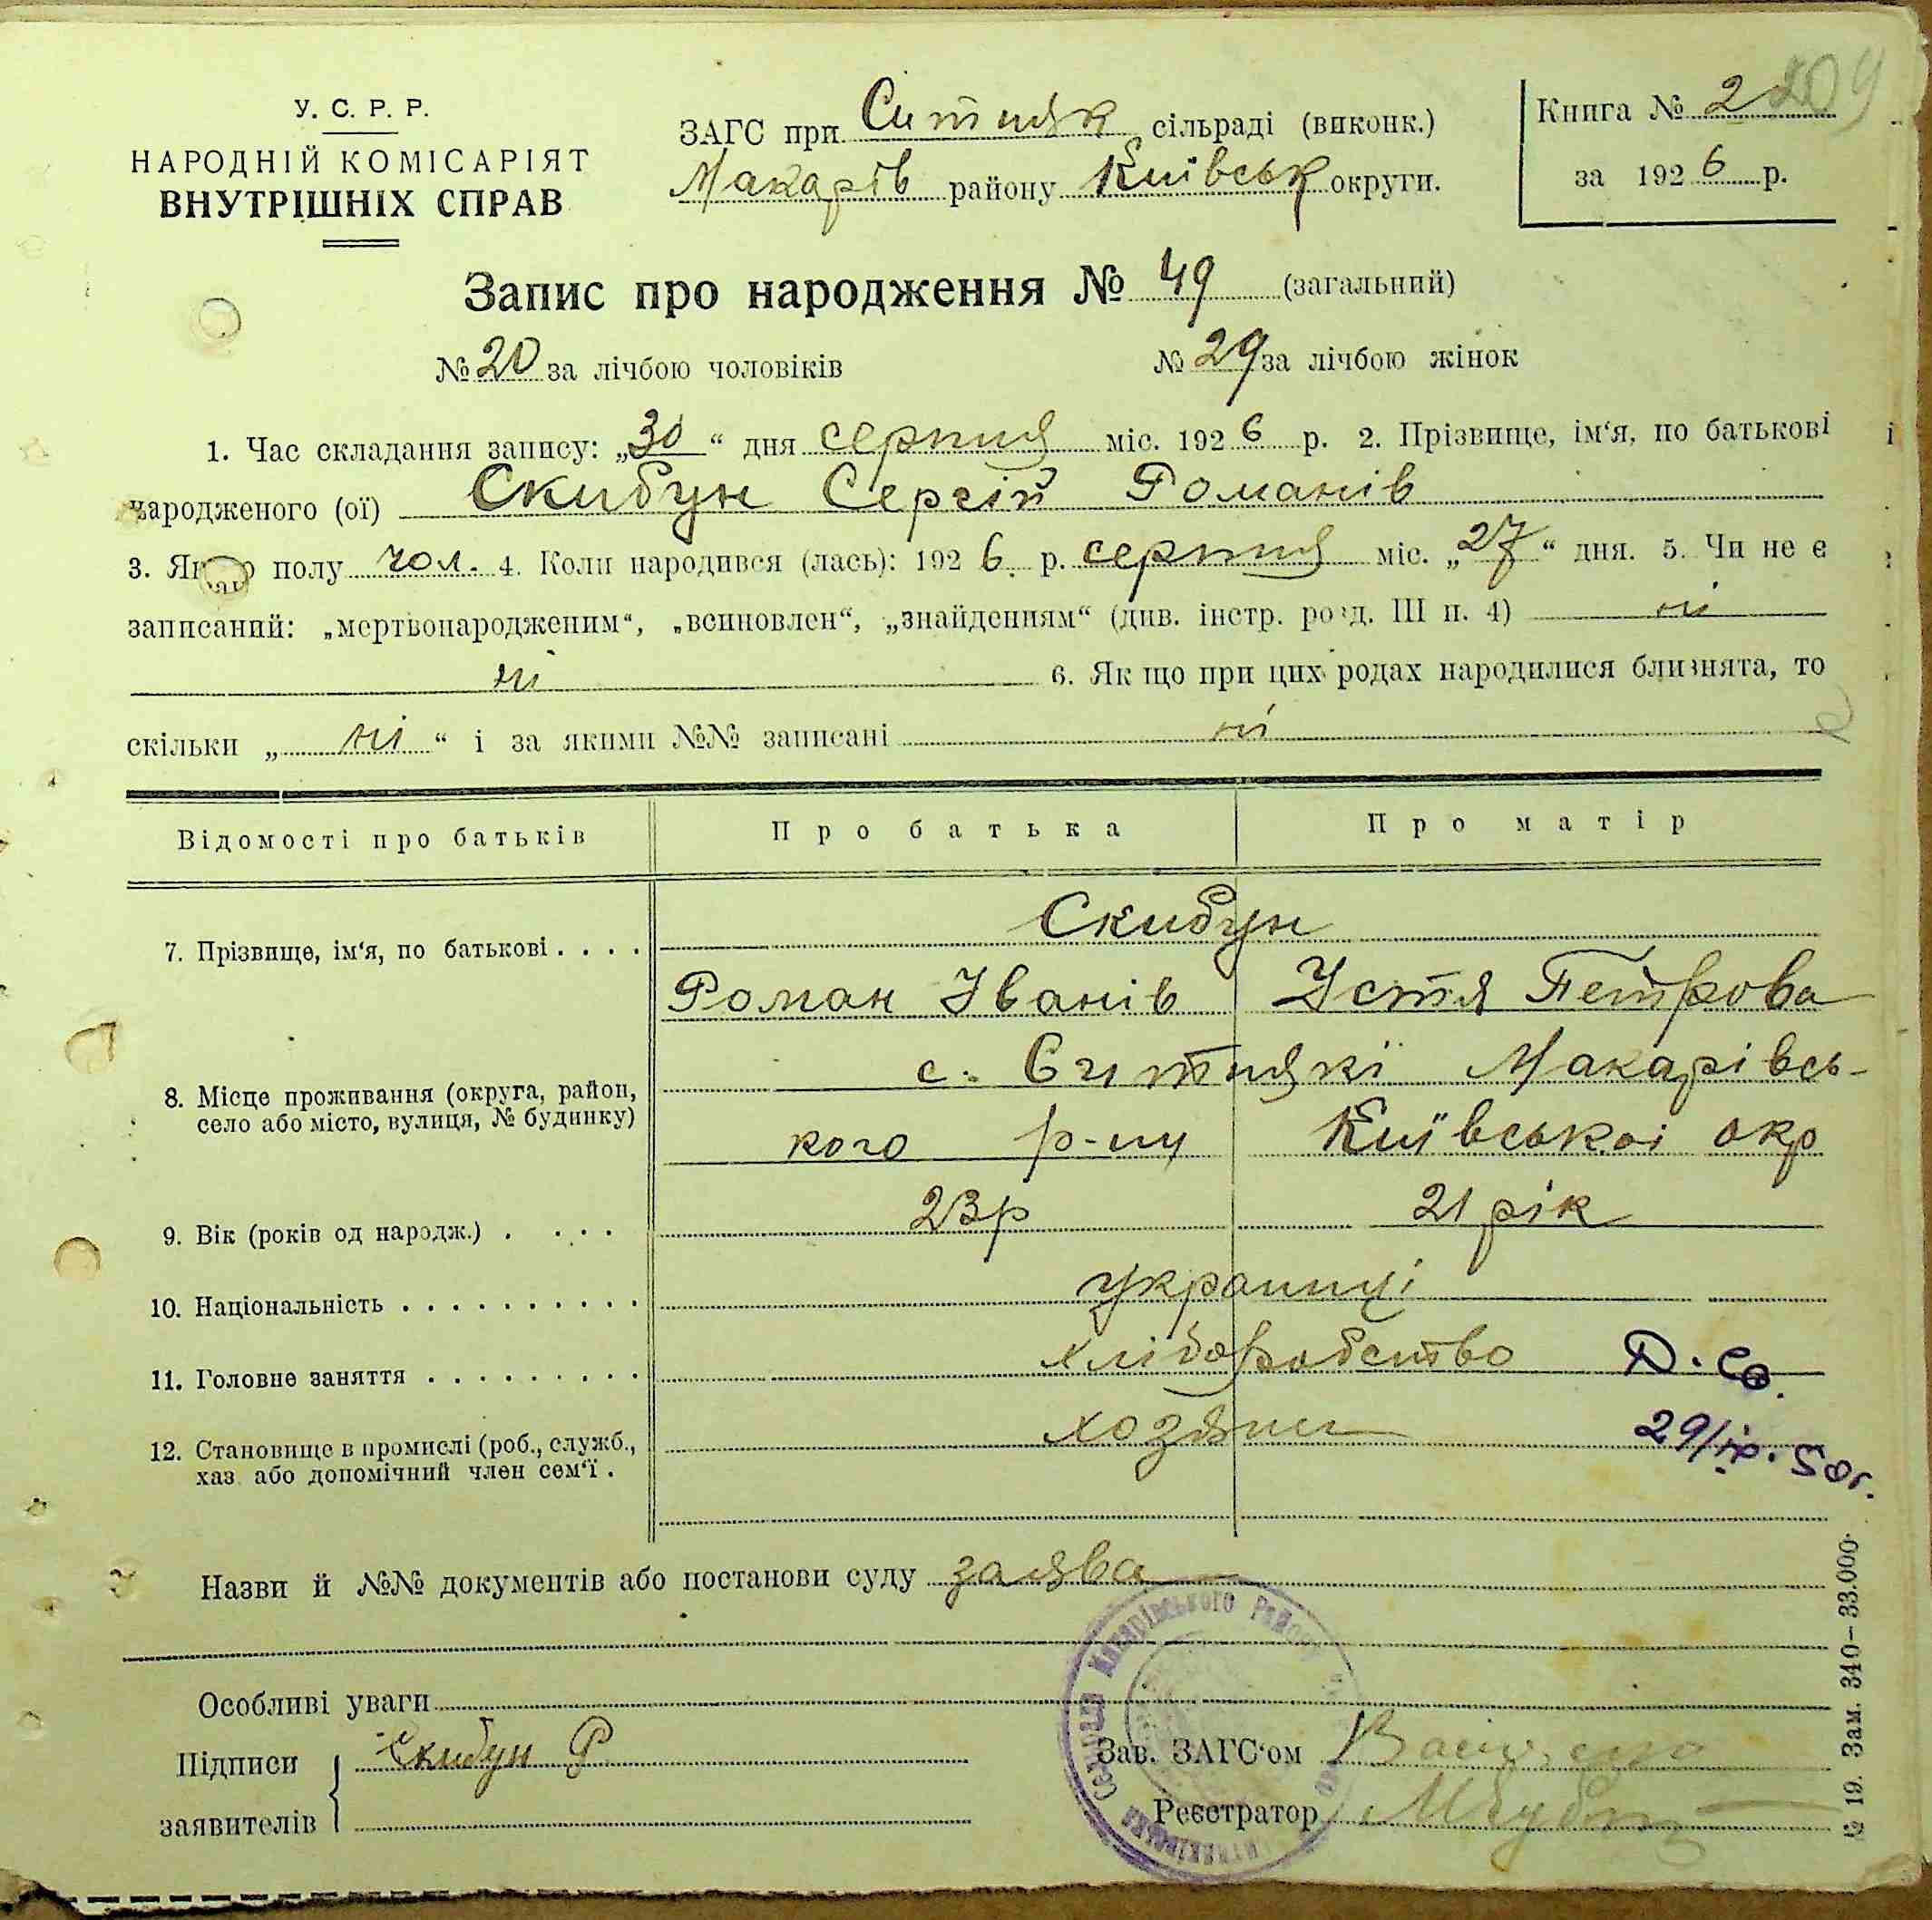 У. С. Р. Р.
НАРОДНІЙ КОМІСАРІЯТ
ВНУТРІШНІХ СПРАВ
ЗАГС при Ситняк сільраді (виконк.)
Макарів району Київськ округи.
Книга № 2 209
за 1926 р.
Запис про народження № 49 (загальний)
№ 20 за лічбою чоловіків № 29 за лічбою жінок
1. Час складання запису: „30“ дня серпня міс. 1926 р. 2. Прізвище, ім‘я, по батькові
народженого (ої) Скибун Сергій Романів
3. Якого полу чол. 4. Коли народився (лась): 1926 р. серпня міс. „27“ дня. 5. Чи не є
записаний: „мертвонародженим“, „всиновлен“, „знайденням“ (див. інстр. розд. III п. 4) ні
ні 6. Якщо при цих родах народилися близнята, то
скільки „ні“ і за якими №№ записані ні
Відомості про батьків Про батька Про матір
Скибун
7. Прізвище, ім‘я, по батькові . . . .
Роман Іванів Устя Петрова
с. Ситнякі Макарівсь-
8. Місце проживання (округа, район,
село або місто, вулиця, № будинку)
кого р-ну Київської окр
9. Вік (років од народж.) . . . . 23р 21 рік
10. Національність . . . . . . . . . . українці
11. Головне заняття . . . . . . . . . хліборобство
12. Становище в промислі (роб., служб.,
хаз. або допомічний член сем‘ї . хозяин 29/IX.50г.
Назви й №№ документів або постанови суду заява
Особливі уваги
Підписи
заявителів
Скибун Р
Зав. ЗАГС‘ом
Реєстратор
Сільрада Макарівського Району
№ 19. Зам. 340–33.000.